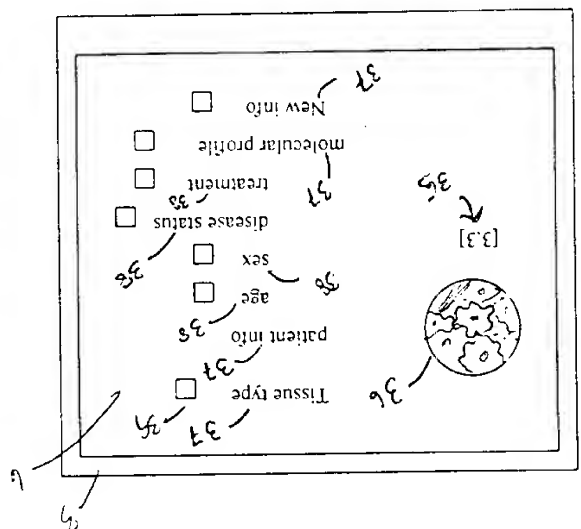 37
Tissue type
36
37
patient info
38
age
38
sex
[3.3]
38
disease status
35
38
treatment
37
molecular profile
New info
37